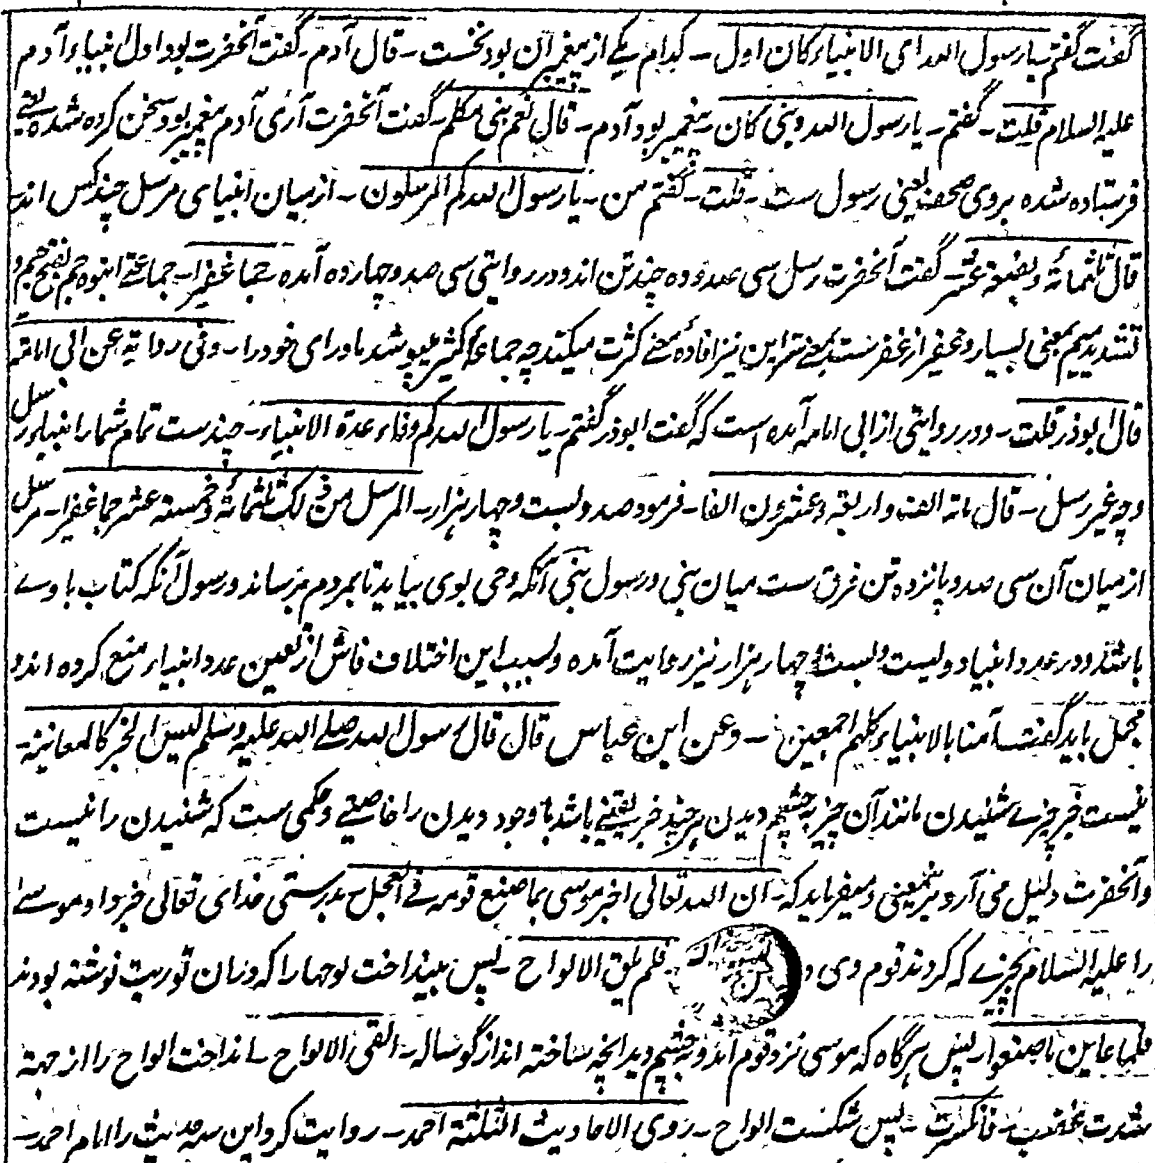 گفت گفتم یا رسول الله ای الانبیاء کان اول ـ کدام یکے از پیغمبران بود نخست ـ قال آدم ـ گفت آنحضرت بود اول انبیاء آدم
علیه السلام قلت ـ گفتم ـ یا رسول الله و نبی کان ـ پیغمبر بود آدم ـ قال نعم نبی مکلم ـ گفت آنحضرت آری آدم پیغمبر بود سخن کرده شده یعنے
فرستاده شده بروی صحف یعنی رسول ست ـ قلت ـ گفتم من ـ یا رسول الله کم المرسلون ـ از میان انبیای مرسل چند کس اند
قال ثلثمائة و بضعة عشر ـ گفت آنحضرت رسل سی صد و ده چند تن اند و در روایتی سی صد و چهارده آمده ـ جما غفیرا ـ جماعتے انبوه جم بفتح جیم و
تشدید میم بمعنی بسیار و غفیر از غفر ست بمعنے ستر این نیز افادهٔ معنے کثرت میکند چه جماعهٔ کثیر میپوشد ماورای خود را ـ و فی روایة عن ابی امامة
قال ابوذر قلت ـ و در روایتی از ابی امامه آمده است که گفت ابوذر گفتم ـ یا رسول الله کم وفاء عدة الانبیاء ـ چندست تمام شمار انبیا چه رسل
و چه غیر رسل ـ قال مائة الف و اربعة و عشرون الفا ـ فرمود صد و بست و چهار هزار ـ المرسل من ذلک ثلثمائة و خمسة عشر جما غفیرا ـ مرسل
از میان آن سی صد و پانزده تن فرق ست میان نبی و رسول نبی آنکه وحی بوی بیاید تا بمردم برساند و رسول آنکه کتاب با وے
باشد و در عدد انبیا دویست و بست و چهار هزار نیز روایت آمده و بسبب این اختلاف فاش از تعیین عدد انبیاء منع کرده اند و
مجمل باید گفت آمنا بالانبیاء کلهم اجمعین ـ وعن ابن عباس قال قال رسول الله صلے الله علیه وسلم لیس الخبر کالمعاینة ـ
نیست خبر چیزے شنیدن مانند آن چیز بچشم دیدن هر چند خبر یقینے باشد با وجود دیدن را خاصیتے و حکمی ست که شنیدن را نیست
و آنحضرت دلیل می آرد برینمعنی و میفرماید که ـ ان الله تعالی اخبر موسی بما صنع قومه فے العجل ـ بدرستی خدای تعالی خبر داد موسے
را علیه السلام بچیزے که کردند قوم وی و فلم یلق الالواح ـ پس نینداخت لوحها را که دران توریت نوشته بودند
فلما عاین ما صنعوا ـ پس هر گاه که موسی نزد قوم آمد و بچشم دید آنچه ساخته اند از گوساله ـ القی الالواح ـ انداخت الواح را از جهة
شدت غضب ـ فانکسرت ـ پس شکست الواح ـ روی الاحادیث الثلثة احمد ـ روایت کرد این سه حدیث را امام احمد ـ